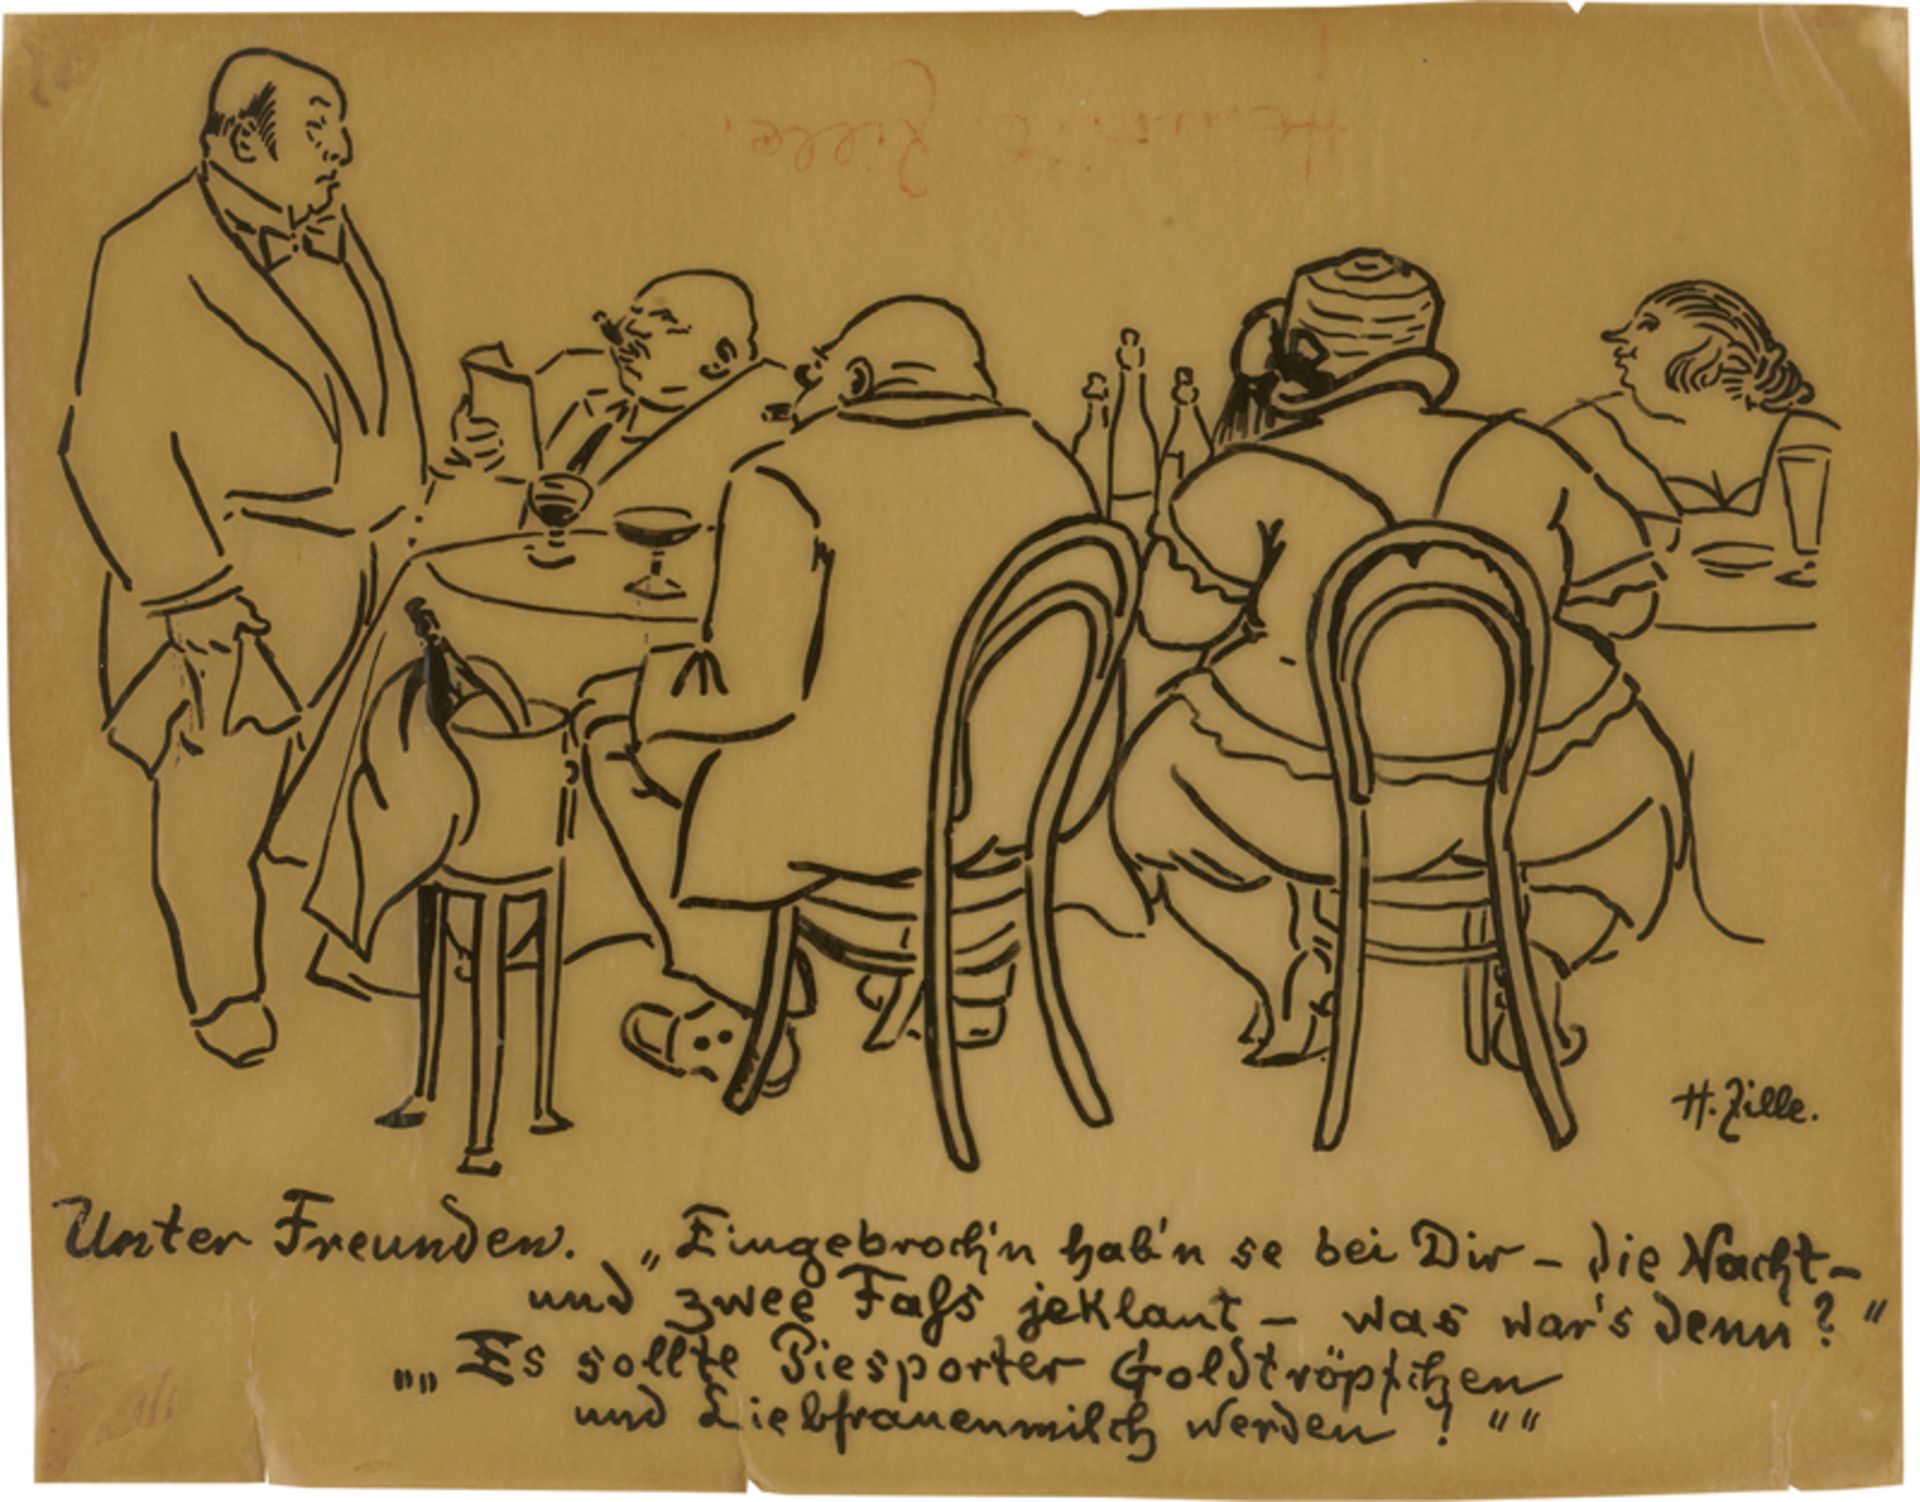 Heinrich Zille.
H. Zille.
Unter Freunden. „Eingebroch'n hab'n se bei Dir – die Nacht –
und zwee Faß jeklaut – was war's denn?"
„„Es sollte Piesporter Goldtröpfchen
und Liebfrauenmilch werden!""